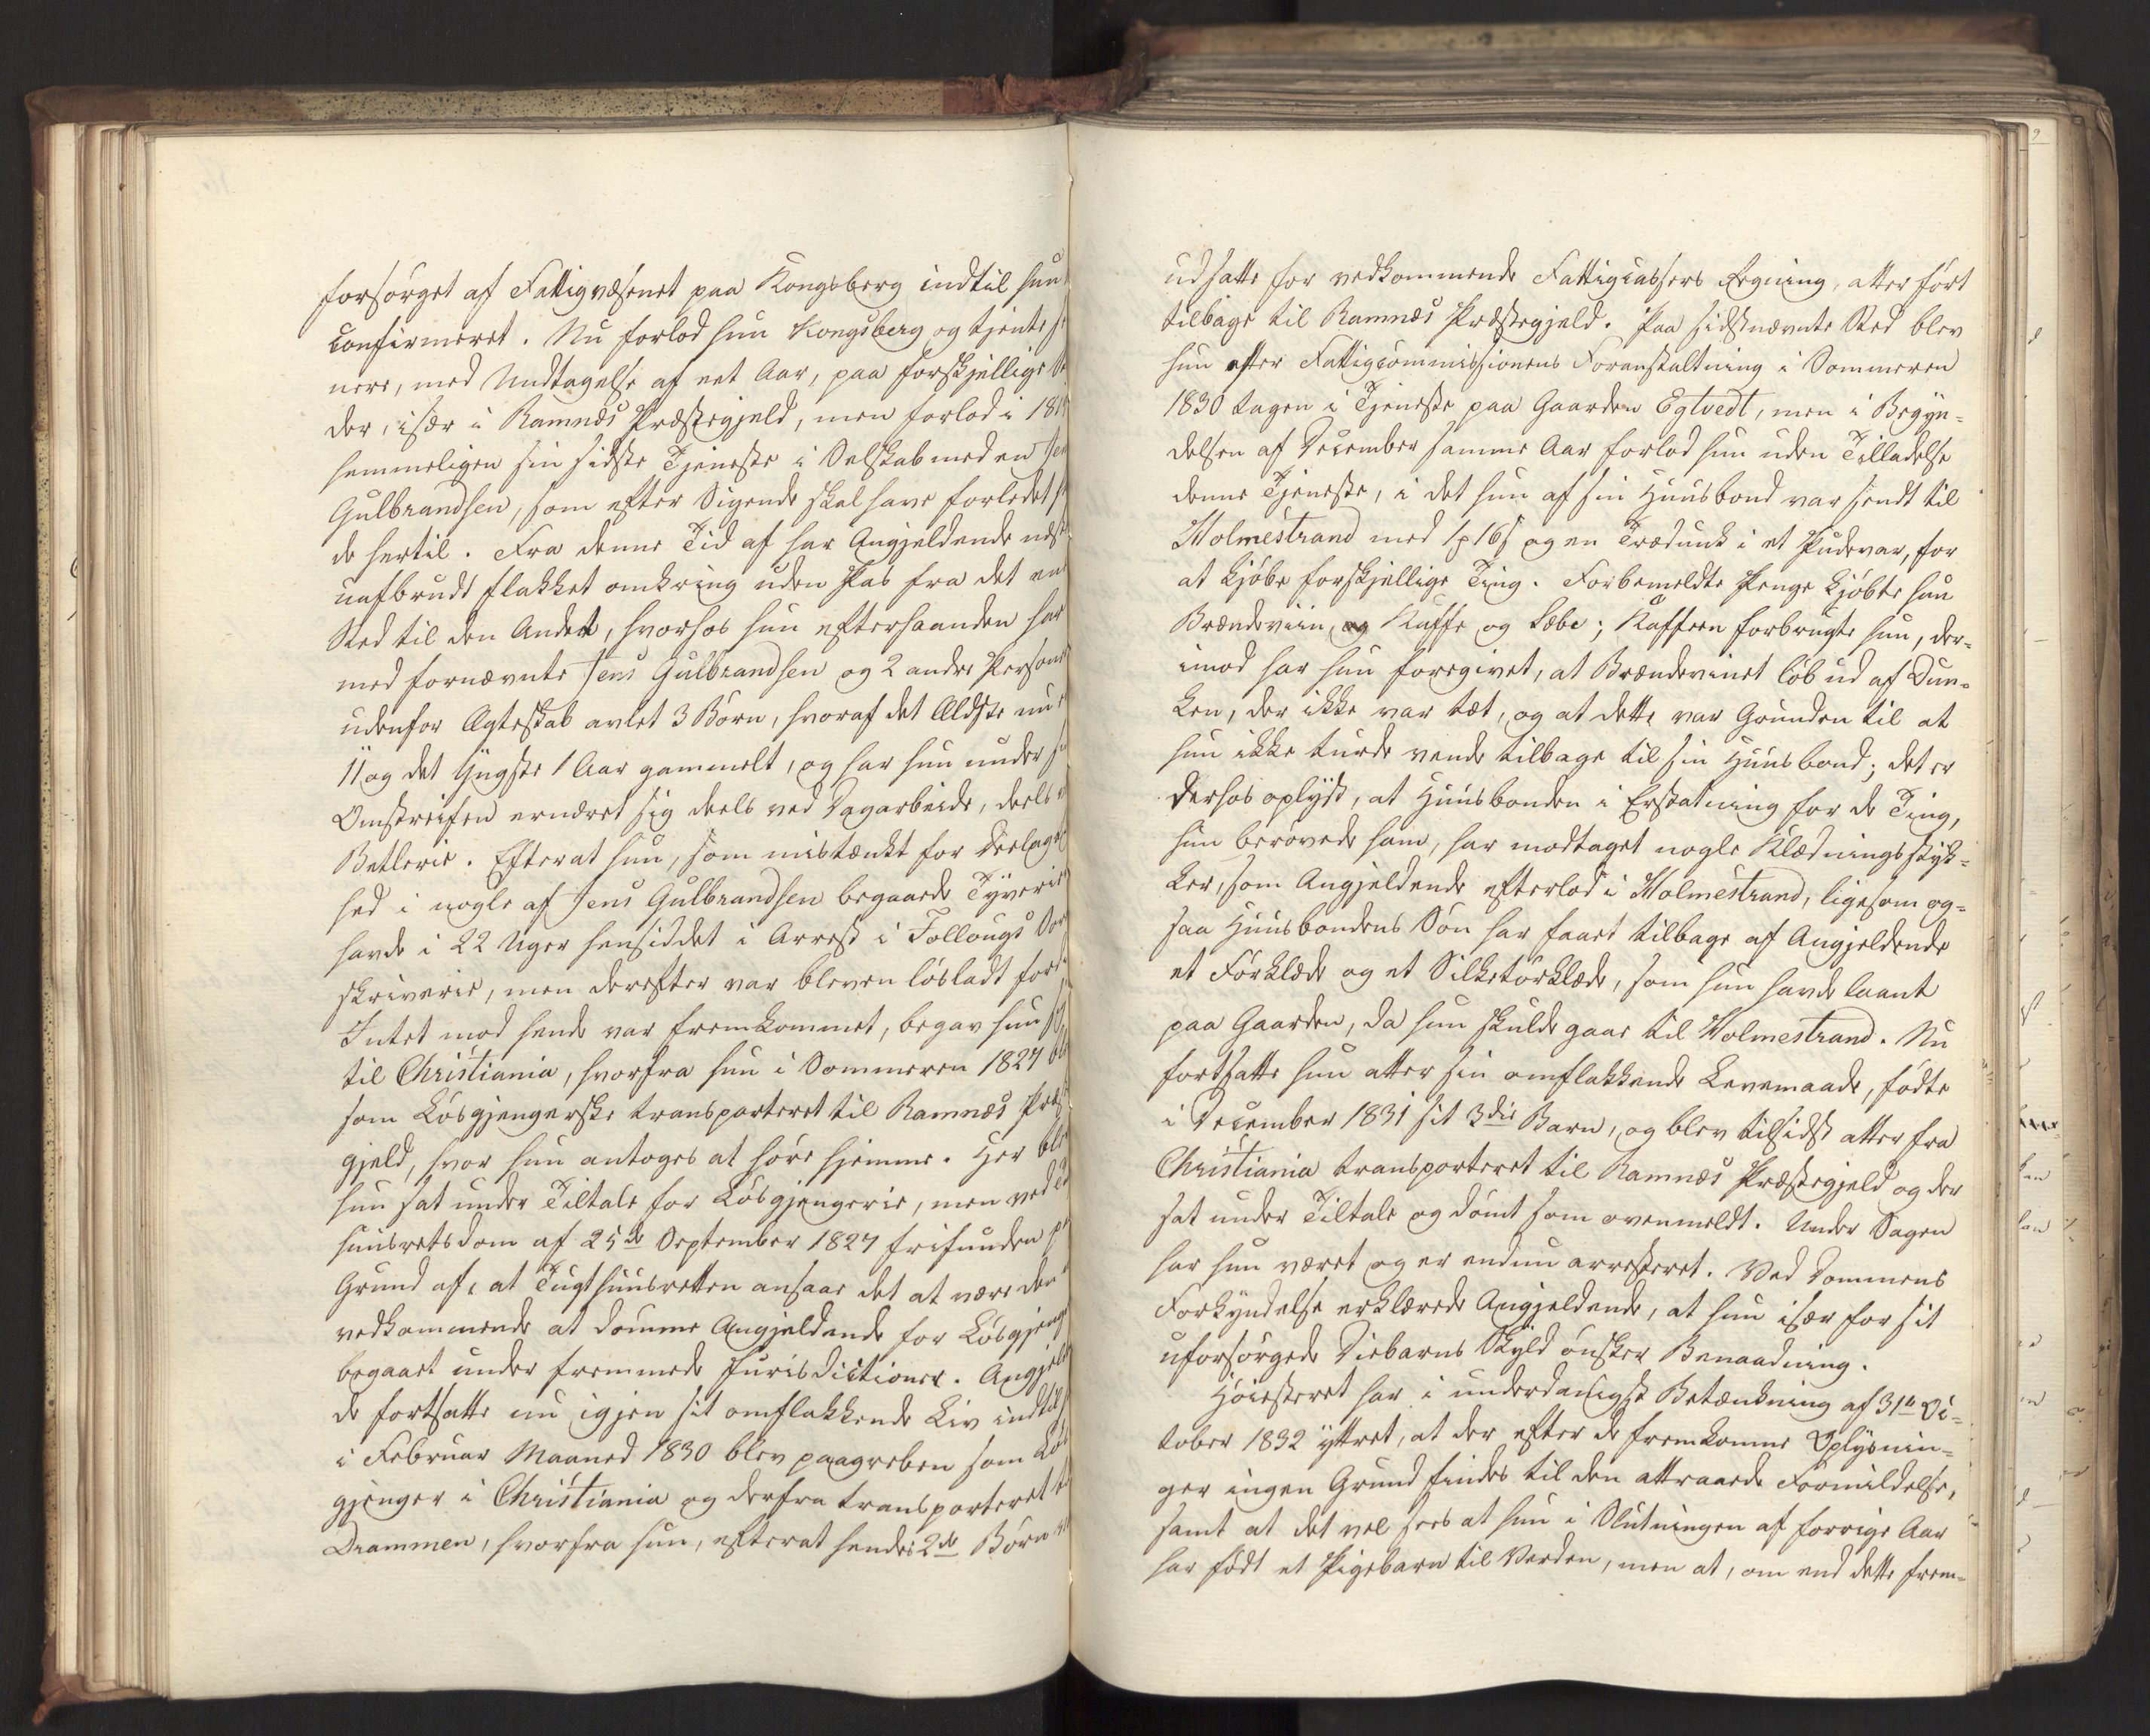 forsørget af Fattigvæsenet paa Kongsberg indtil hun
confirmeret. Nu forlod hun Kongsberg og tjente
nere, med Undtagelse af eet Aar, paa forskjellige
der, især i Ramnæs Præstegjeld, men forlod i
hemmeligen sin sidste Tjeneste i Selskab med en Jens
Gulbrandsen, som efter Sigende skal have forledet
de hertil. Fra denne Tid af har Angjeldende
uafbrudt flakket omkring uden Pas fra det
Sted til den Andet, hvorhos hun efterhaanden har
med fornævnte Jens Gulbrandsen og 2 andre
udenfor Ægteskab avlet 3 Børn, hvoraf det Ældste nu
11 og det Yngste 1 Aar gammelt, og har hun under
Omstreifen ernæret sig deels ved Dagarbeide, deels
Betlerie. Efterat hun, som mistænkt for
hed i nogle af Jens Gulbrandsen begaaede Tyverier
havde i 22 Uger hensiddet i Arrest i Follougs
skriverie, men derefter var bleven løsladt
Intet mod hende var fremkommet, begav hun
til Christiania, hvorfra hun i Sommeren 1827
som Løsgjengerske transporteret til Ramnæs
gjeld, hvor hun antoges at høre hjemme. Her blev
hun sat under Tiltale for Løsgjengerie, men ved
huusretsdom af 25de September 1827 frifunden
Grund af, at Tugthuusretten ansaae det at være den
vedkommende at dømme Angjeldende for
begaaet under fremmede Jurisdictioner.
de fortsatte nu igjen sit omflakkende Liv indtil
i Februar Maaned 1830 blev paagreben som
gjenger i Christiania og derfra transporteret
Drammen, hvorfra hun, efterat hendes 2de Børn
udsatte for vedkommende Fattigcassers Regning, atter ført
tilbage til Ramnæs Præstegjeld. Paa sidstnævnte Sted blev
hun efter Fattigcommissionens Foranstaltning i Sommeren
1830 tagen i Tjeneste paa Gaarden Egtvedt, men i Begyn-
delsen af December samme Aar forlod hun uden Tilladelse
denne Tjeneste, i det hun af sin Huusbond var sendt til
Holmestrand med 1 16 og en Trædunk i et Pudevar, for
at kjøbe forskjellige Ting. Forbemeldte Penge kjøbte hun
Brændeviin, og Kaffe og Sæbe; Kaffeen forbrugte hun, der-
imod har hun foregivet, at Brændevinet løb ud af Dun-
ken, der ikke var tæt, og at dette var Grunden til at
hun ikke turde vende tilbage til sin Huusbond; det er
derhos oplyst, at Huusbonden i Erstatning for de Ting,
hun berøvede ham, har modtaget nogle Klædningsstyk-
ker, som Angjeldende efterlod i Holmestrand, ligesom og-
saa Huusbondens Søn har faaet tilbage af Angjeldende
et Førklæde og et Silketørklæde, som hun havde laant
paa Gaarden, da hun skulde gaae til Holmestrand. Nu
fortsatte hun atter sin omflakkende Levemaade, fødte
i December 1831 sit 3die Barn, og blev tilsidst atter fra
Christiania transporteret til Ramnæs Præstegjeld og der
sat under Tiltale og dømt som ovenmeldt. Under Sagen
har hun været og er endnu arresteret. Ved Dommens
Forkyndelse erklærede Angjeldende, at hun især for sit
uforsørgede Diebarns Skyld ønsker Benaadning.
Høiesteret har i underdanigst Betænkning af 31te Oc-
tober 1832 yttret, at der efter de fremkomne Oplysnin-
ger ingen Grund findes til den attraaede Formildelse,
samt at det vel sees at hun i Slutningen af forrige Aar
har født et Pigebarn til Verden, men at, om end dette frem-